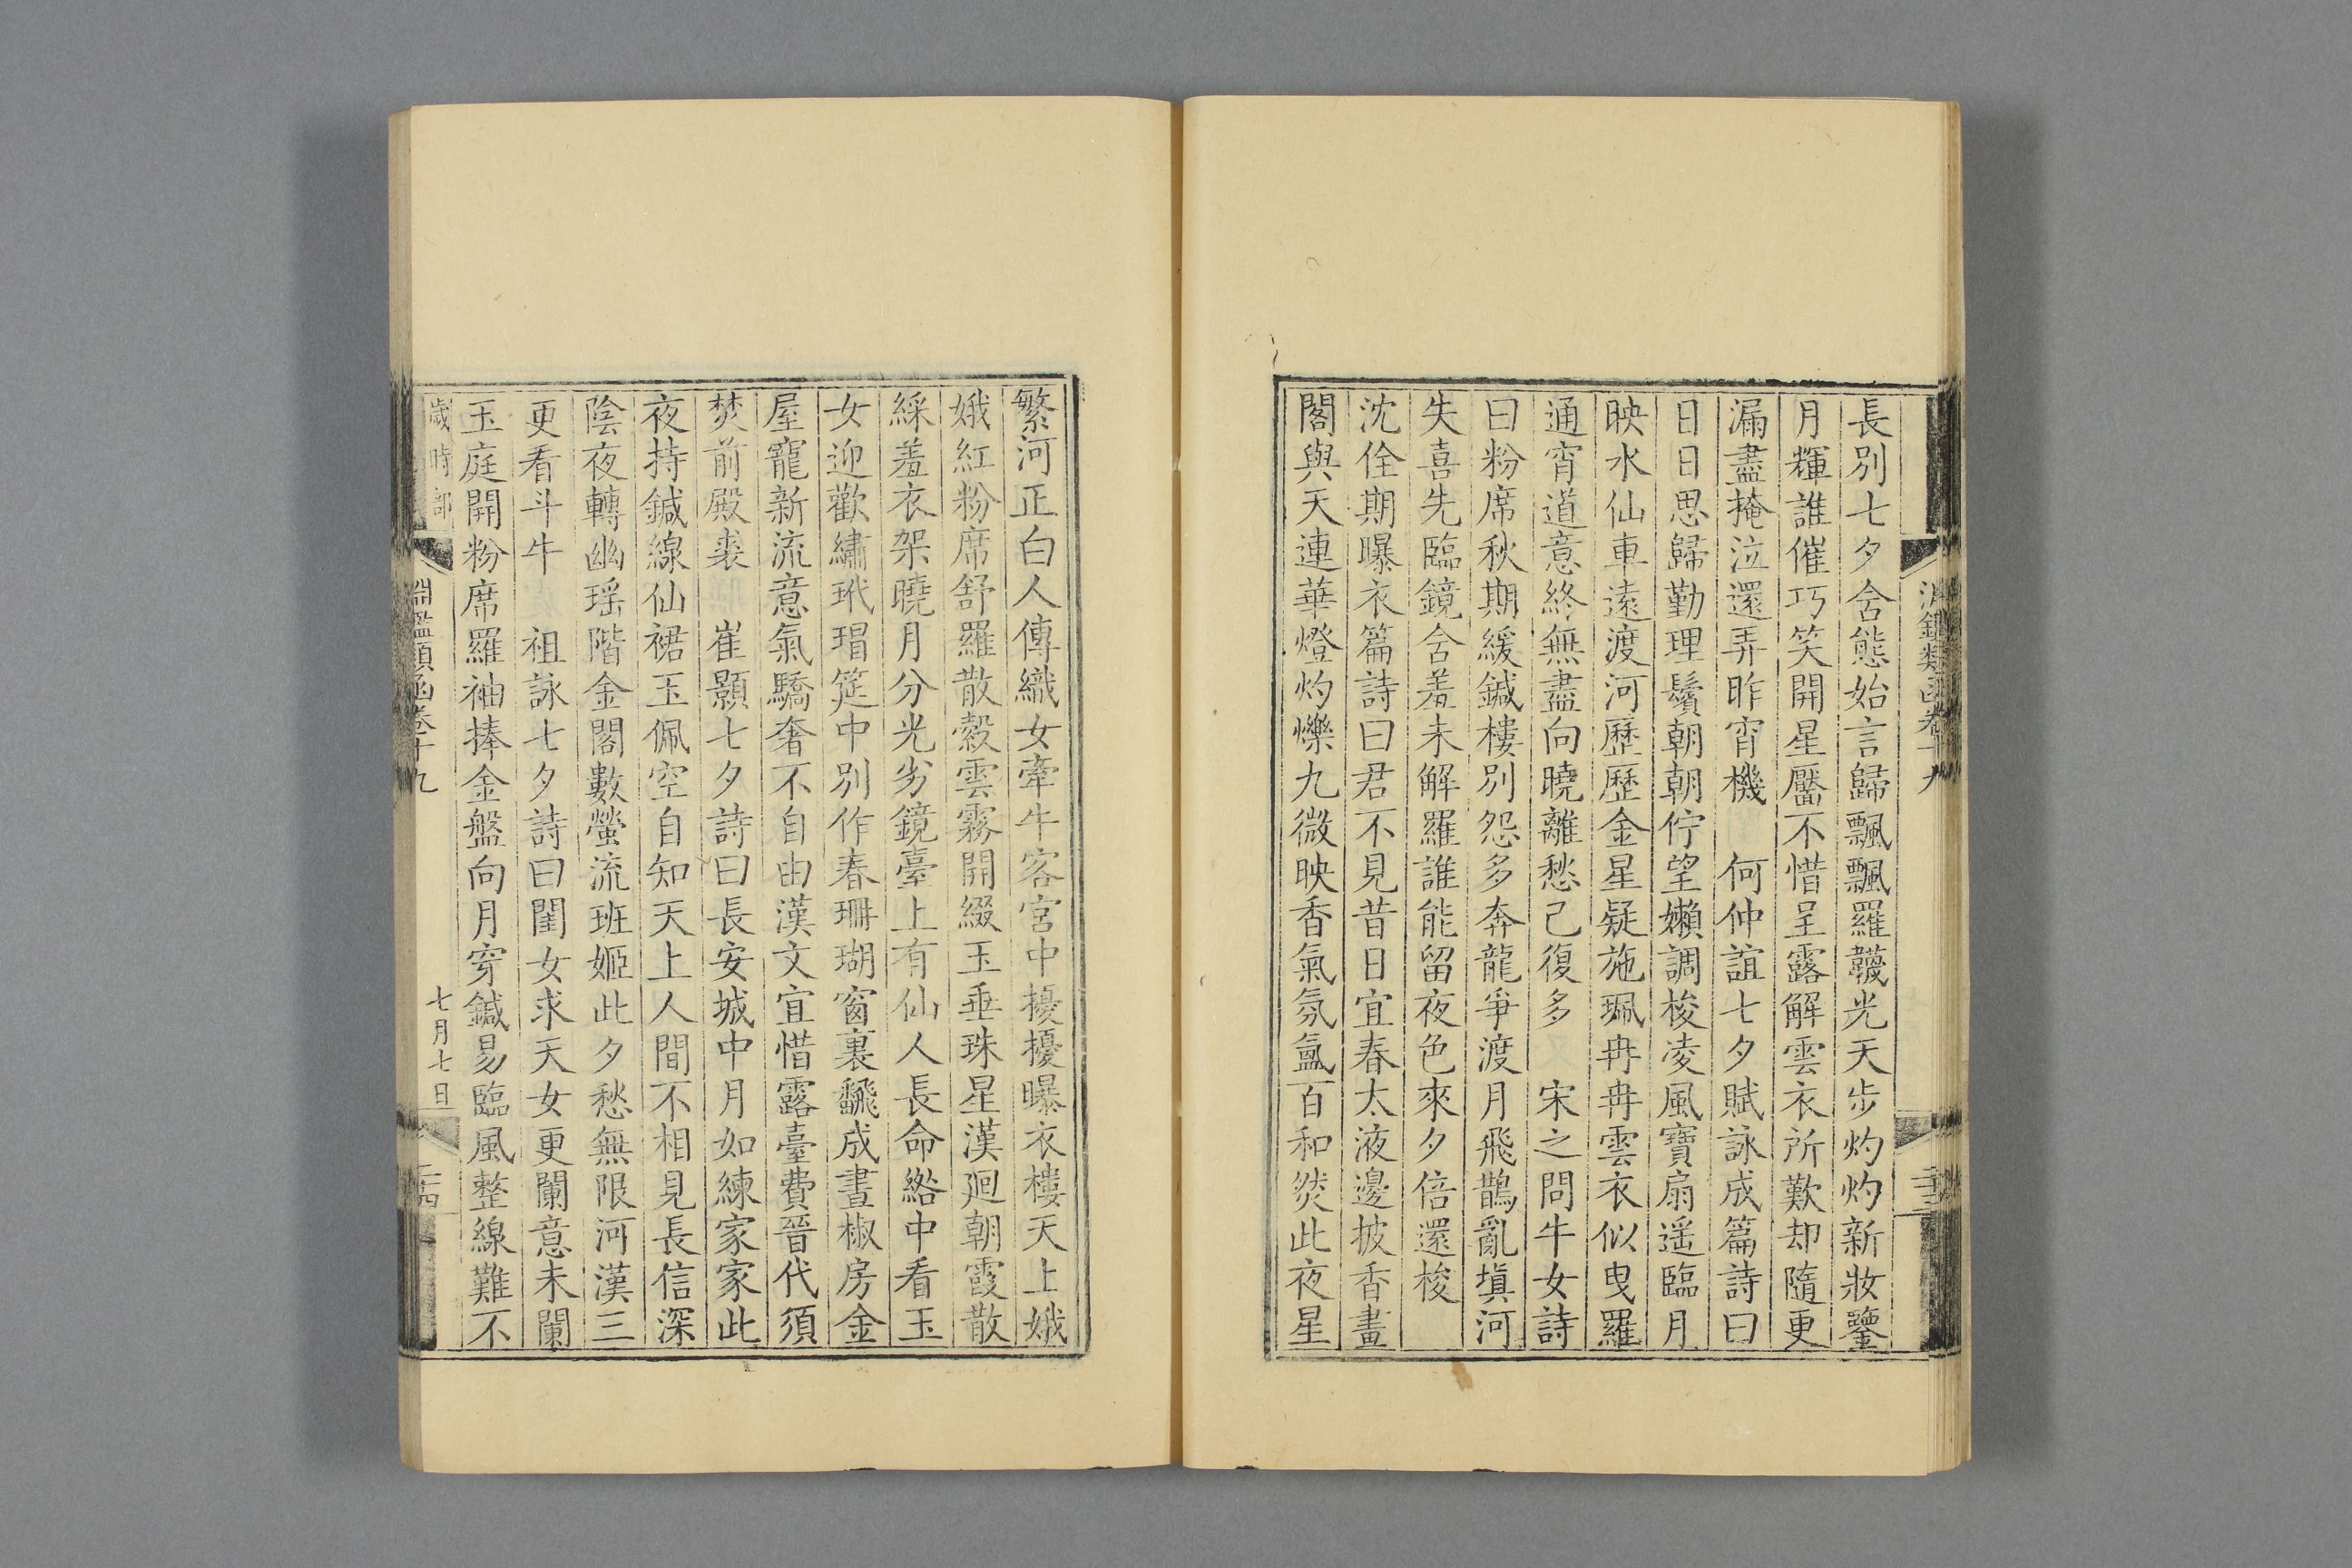 長別七夕含態始言歸飄飄羅韈光天步灼灼新妝鑒
月輝誰催巧笑開星靨不惜呈露解雲衣所歎却隨更
漏盡掩泣還弄昨宵機　何仲誼七夕賦詠成篇詩曰
日日思歸勤理鬢朝朝佇望嬾調梭凌風寶扇遥臨月
映水仙車遠渡河歷歷金星疑施珮冉冉雲衣似曳羅
通宵道意終無盡向曉離愁已復多　宋之問牛女詩
曰粉席秋期緩鍼樓別怨多奔龍爭渡月飛鵲亂塡河
失喜先臨鏡含羞未解羅誰能留夜色來夕倍還梭
沈佺期曝衣篇詩曰君不見昔日宜春太液邊披香畫
閣與天連華燈灼爍九微映香氣氛氳百和然此夜星
繁河正白人傳織女牽牛客宮中擾擾曝衣樓天上娥
娥紅粉席舒羅散縠雲霧開綴玉垂珠星漢廻朝霞散
綵羞衣架曉月分光劣鏡臺上有仙人長命綹中看玉
女迎歡繡玳瑁筵中別作春珊瑚窗裏飜成晝椒房金
屋寵新流意氣驕奢不自由漢文宜惜露臺費晉代須
焚前殿裘　崔顥七夕詩曰長安城中月如練家家此
夜持鍼線仙裙玉佩空自知天上人間不相見長信深
陰夜轉幽瑤階金閣數螢流班姬此夕愁無限河漢三
更看斗牛　祖詠七夕詩曰閨女求天女更闌意未闌
玉庭開粉席羅袖捧金盤向月穿鍼易臨風整線難不
歲時部　淵鑑類函卷十九　七月七日　二十四